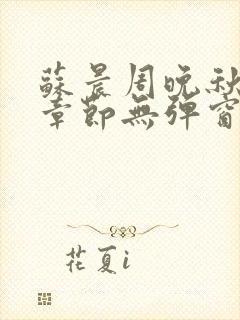 蘇晨周晚秋
章節無彈窗
花夏i